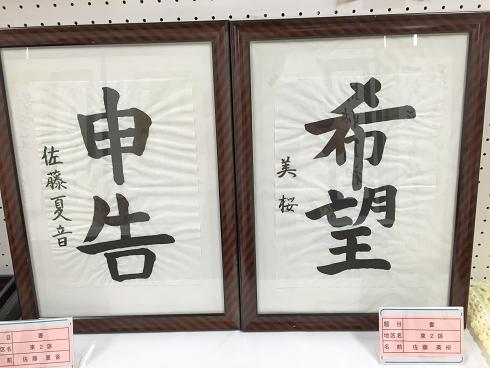 申告
佐藤夏音
希望
美桜
目 書
区名 東2区
名 前 佐藤 夏音
題 目 書
地区名 東2区
名 前 佐藤 美桜